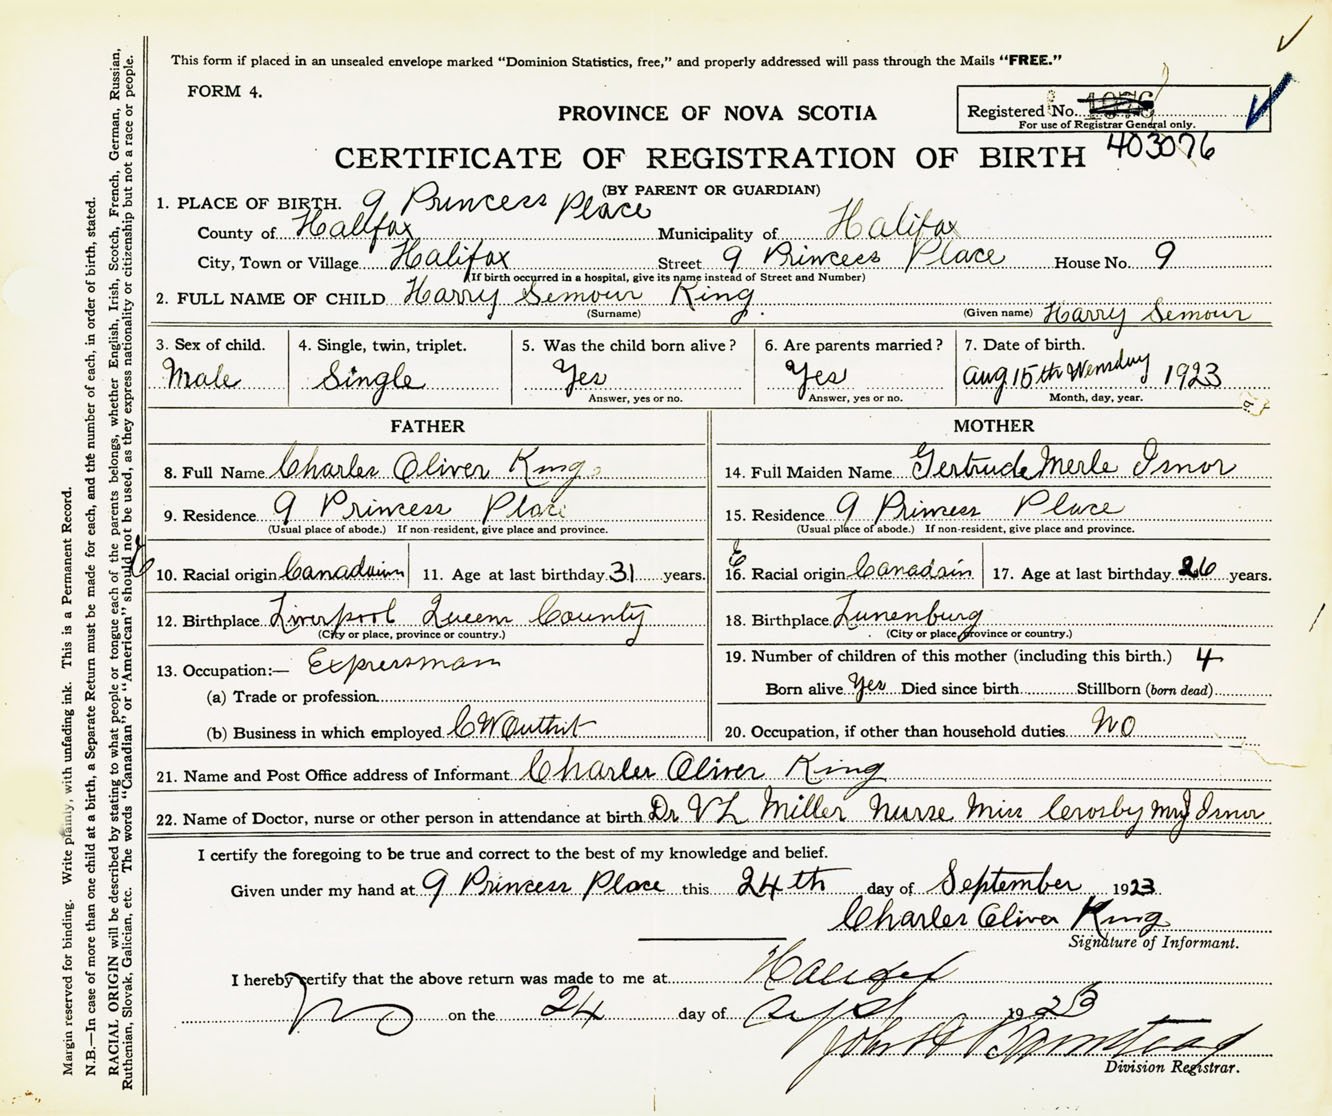 This form if placed in an unsealed envelope marked "Dominion Statistics, free," and properly addressed will pass through the Mails "FREE."
FORM 4.
PROVINCE OF NOVA SCOTIA
Registered No. 1076
For use of Registrar General only.
403076
CERTIFICATE OF REGISTRATION OF BIRTH
(BY PARENT OR GUARDIAN)
1. PLACE OF BIRTH. 9 Princess Place
County of Halifax Municipality of Halifax
City, Town or Village Halifax Street 9 Princess Place House No. 9
(If birth occurred in a hospital, give its name instead of Street and Number)
2. FULL NAME OF CHILD Harry Semour King
(Surname) (Given name) Harry Semour
3. Sex of child. 4. Single, twin, triplet. 5. Was the child born alive? 6. Are parents married? 7. Date of birth.
Male Single Yes Yes Aug 15th Wensday 1923
Answer, yes or no. Answer, yes or no. Month, day, year.
FATHER MOTHER
8. Full Name Charles Oliver King 14. Full Maiden Name Gertrude Merle Isnor
9. Residence 9 Princess Place 15. Residence 9 Princess Place
(Usual place of abode.) If non-resident, give place and province. (Usual place of abode.) If non-resident, give place and province.
10. Racial origin Canadain 11. Age at last birthday 31 years. 16. Racial origin Canadain 17. Age at last birthday 26 years.
12. Birthplace Liverpool Queens County 18. Birthplace Lunenburg
(City or place, province or country.) (City or place, province or country.)
13. Occupation:— Expressman 19. Number of children of this mother (including this birth.) 4
(a) Trade or profession Born alive Yes Died since birth Stillborn (born dead)
(b) Business in which employed C W Outhit 20. Occupation, if other than household duties No
21. Name and Post Office address of Informant Charles Oliver King
22. Name of Doctor, nurse or other person in attendance at birth Dr V L Miller Nurse Miss Crosby Mrs J Isnor
I certify the foregoing to be true and correct to the best of my knowledge and belief.
Given under my hand at 9 Princess Place this 24th day of September 1923
Charles Oliver King
Signature of Informant.
I hereby certify that the above return was made to me at Halifax
NS on the 24 day of Sept 1923
John A
Division Registrar.
Margin reserved for binding. Write plainly, with unfading ink. This is a Permanent Record.
N.B.—In case of more than one child at a birth, a Separate Return must be made for each, and the number of each, in order of birth, stated.
RACIAL ORIGIN will be described by stating to what people or tongue each of the parents belongs, whether English, Irish, Scotch, French, German, Russian,
Ruthenian, Slovak, Galician, etc. The words "Canadian" or "American" should not be used, as they express nationality or citizenship but not a race or people.